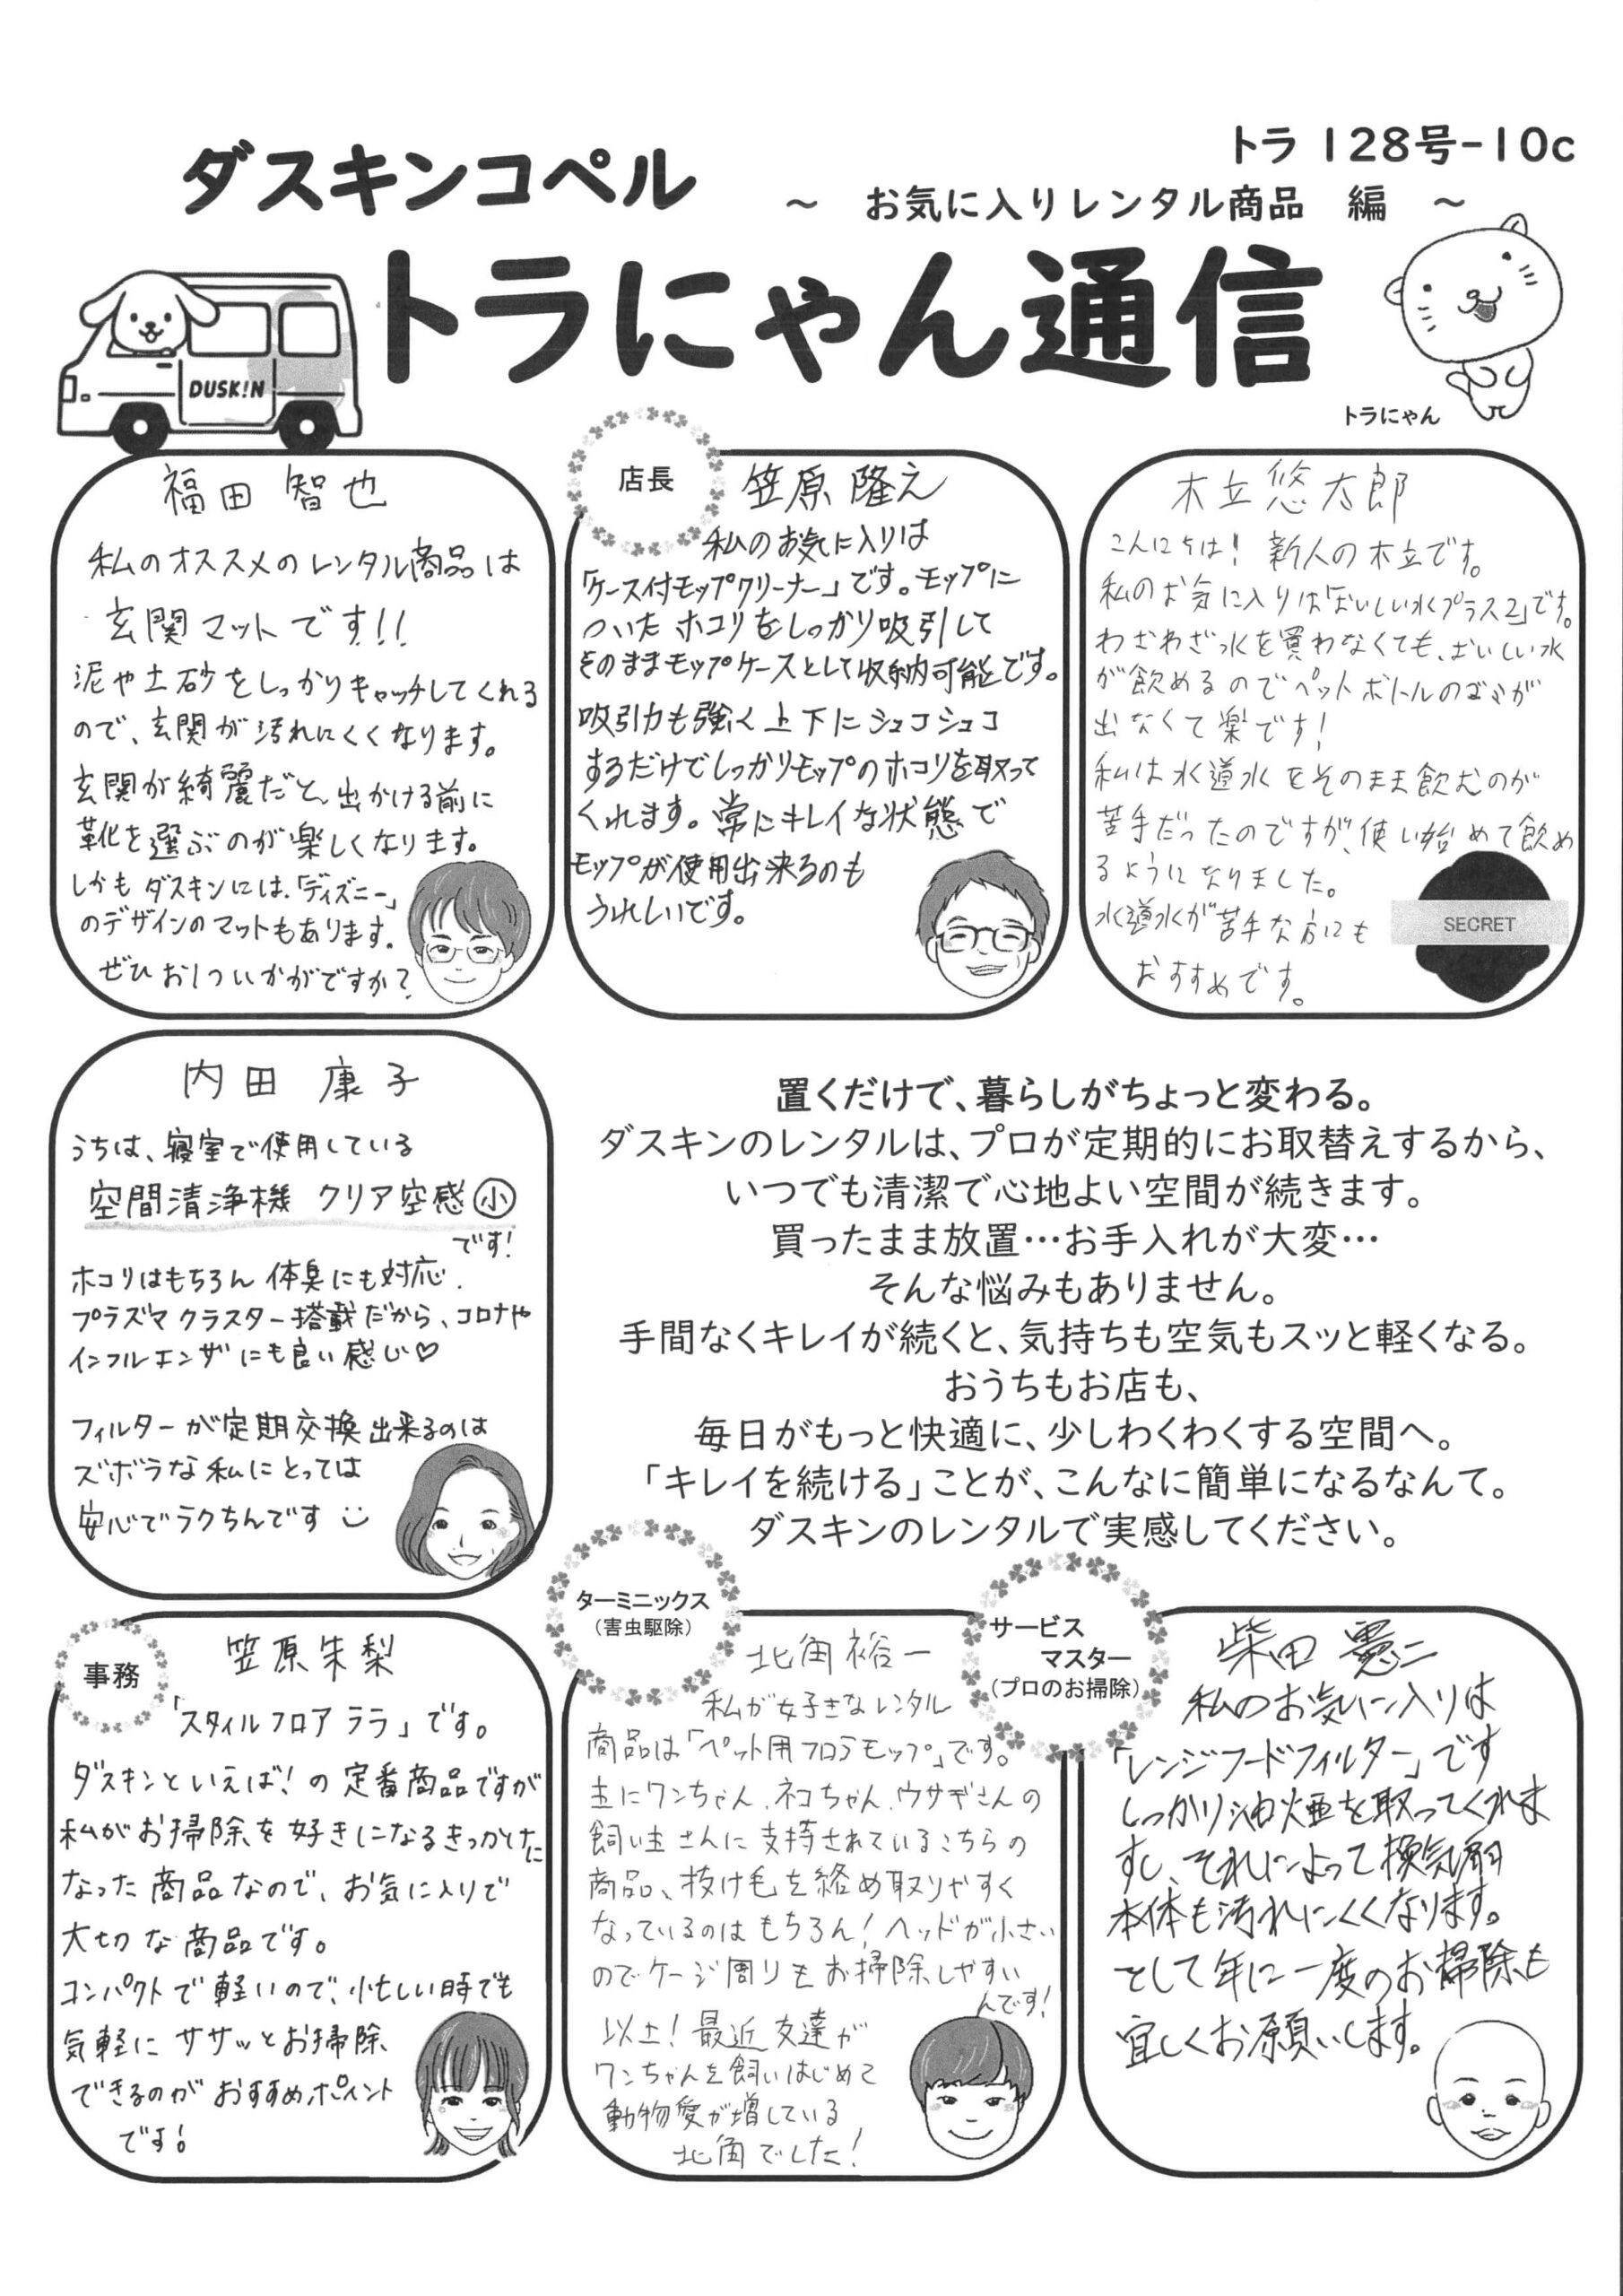 トラ 128号-10c
ダスキンコペル
～ お気に入りレンタル商品 編 ～
トラにゃん通信
DUSK!N
トラにゃん
福田 智也
私のオススメのレンタル商品は
玄関マットです!!
泥や土砂をしっかりキャッチしてくれる
ので、玄関が汚れにくくなります。
玄関が綺麗だと、出かける前に
靴を選ぶのが楽しくなります。
しかもダスキンには、「ディズニー」
のデザインのマットもあります。
ぜひおしついかがですか?
店長
笠原 隆之
私のお気に入りは
「ケース付モップクリーナー」です。モップに
ついたホコリをしっかり吸引して
そのままモップケースとして収納可能です。
吸引力も強く上下にシュコシュコ
するだけでしっかりモップのホコリを取って
くれます。常にキレイな状態で
モップが使用出来るのも
うれしいです。
木立 悠太郎
こんにちは! 新人の木立です。
私のお気に入りは「おいしい水プラス2」です。
わざわざ水を買わなくても、おいしい水
が飲めるのでペットボトルのゴミが
出なくて楽です!
私は水道水をそのまま飲むのが
苦手だったのですが、使い始めて飲め
るようになりました。
水道水が苦手な方にも
おすすめです。
SECRET
内田 康子
うちは、寝室で使用している
空間清浄機 クリア空感㊙小
です!
ホコリはもちろん体臭にも対応.
プラズマクラスター搭載だから、コロナや
インフルエンザにも良い感じ♡
フィルターが定期交換出来るのは
ズボラな私にとっては
安心でラクちんです
置くだけで、暮らしがちょっと変わる。
ダスキンのレンタルは、プロが定期的にお取替えするから、
いつでも清潔で心地よい空間が続きます。
買ったまま放置…お手入れが大変…
そんな悩みもありません。
手間なくキレイが続くと、気持ちも空気もスッと軽くなる。
おうちもお店も、
毎日がもっと快適に、少しわくわくする空間へ。
「キレイを続ける」ことが、こんなに簡単になるなんて。
ダスキンのレンタルで実感してください。
事務
笠原朱梨
「スタイルフロア ララ」です。
ダスキンといえば!の定番商品ですが
私がお掃除を好きになるきっかけに
なった商品なので、お気に入りで
大切な商品です。
コンパクトで軽いので、忙しい時でも
気軽にササッとお掃除
できるのがおすすめポイント
です!
ターミニックス
(害虫駆除)
北角 裕一
私が好きなレンタル
商品は「ペット用フロアモップ」です。
主にワンちゃん、ネコちゃん、ウサギさんの
飼い主さんに支持されているこちらの
商品、抜け毛を絡め取りやすく
なっているのはもちろん!ヘッドが小さい
のでケージ周りもお掃除しやすい
んです!
以上!最近友達が
ワンちゃんを飼いはじめて
動物愛が増している
北角でした!
サービス
マスター
(プロのお掃除)
柴田 憲二
私のお気に入りは
「レンジフードフィルター」です
しっかり油煙を取ってくれま
すし、それによって換気扇
本体も汚れにくくなります。
そして年に一度のお掃除も
宜しくお願いします。